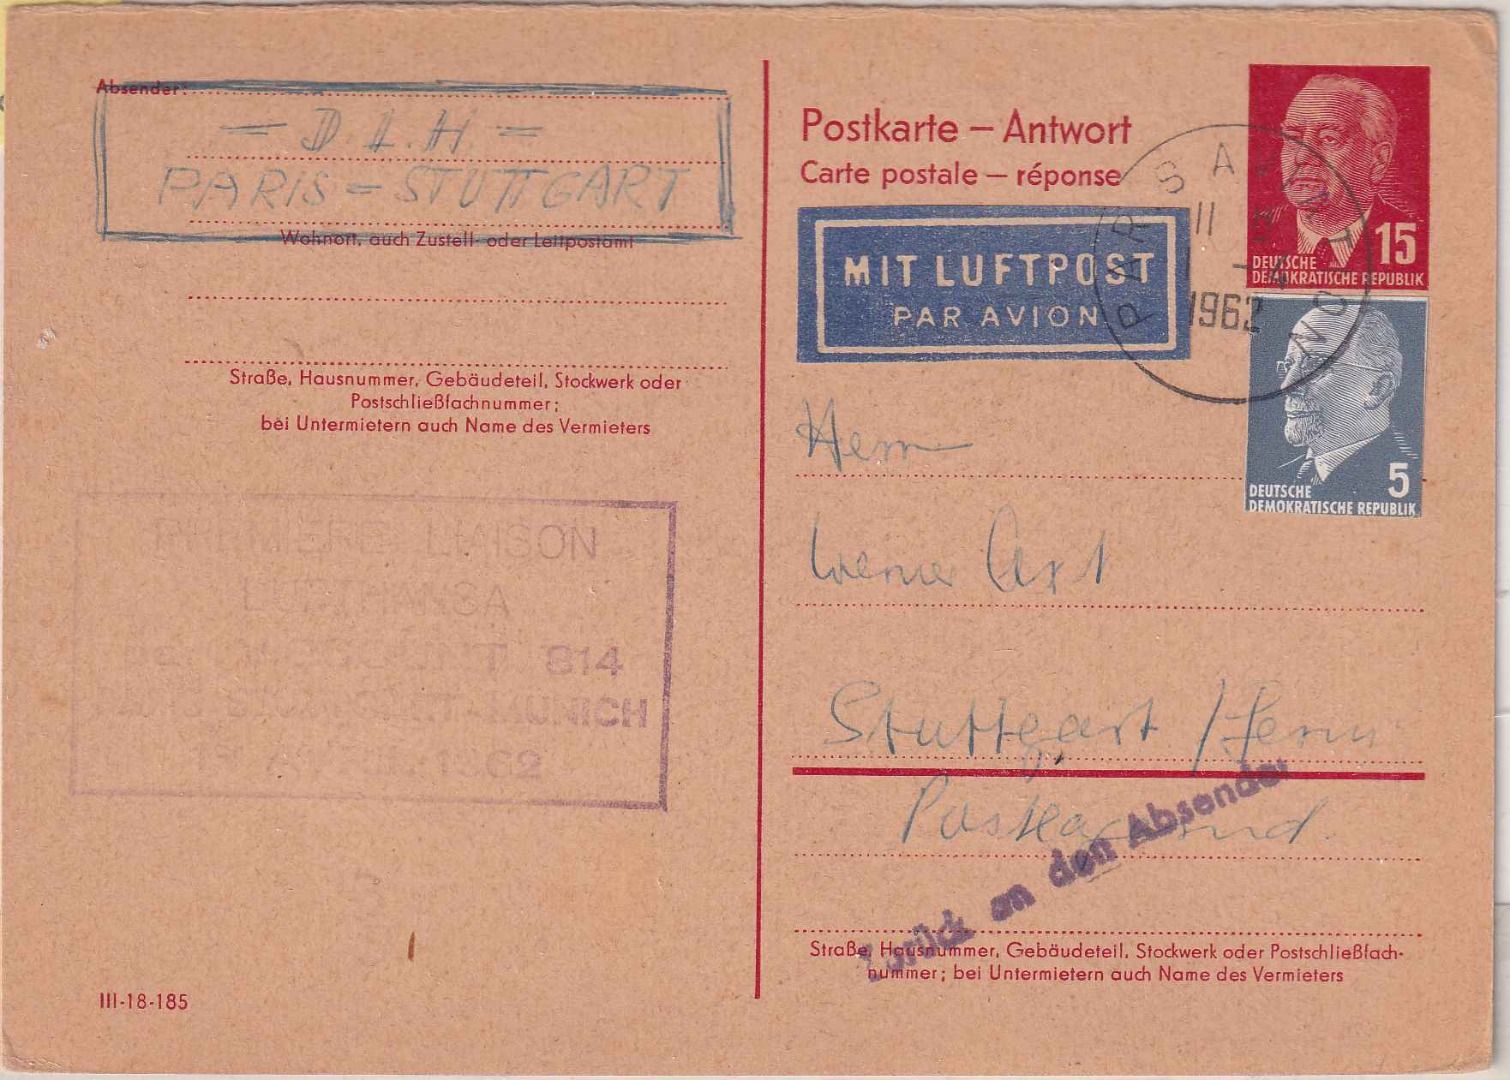 Absender:
= D.L.H =
PARIS = STUTTGART
Wohnort, auch Zustell- oder Leitpostamt
Straße, Hausnummer, Gebäudeteil, Stockwerk oder
Postschließfachnummer;
bei Untermietern auch Name des Vermieters
LIAISON
LUFTHANSA
814
MUNICH
1962
III-18-185
Postkarte – Antwort
Carte postale – réponse
MIT LUFTPOST
PAR AVION
PARIS AVIATION
11
1962
15
DEUTSCHE
DEMOKRATISCHE REPUBLIK
5
DEUTSCHE
DEMOKRATISCHE REPUBLIK
Herrn
Werner Axt
Stuttgart
Zurück an den Absender
Straße, Hausnummer, Gebäudeteil, Stockwerk oder Postschließfach-
nummer; bei Untermietern auch Name des Vermieters